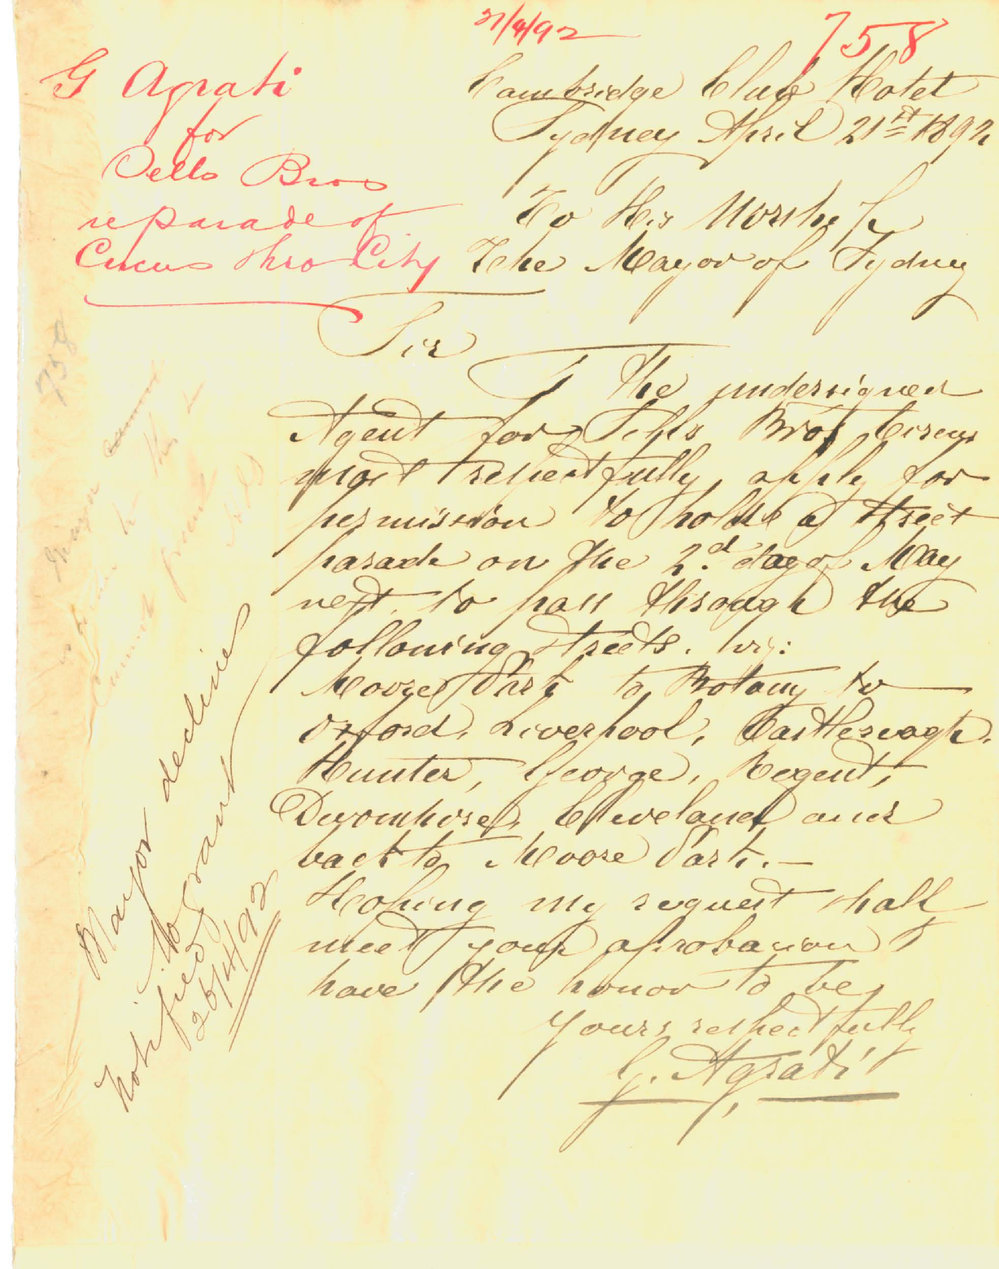 21/4/92
758
G Agrati
for
Sells Bros
re parade of
Circus thro City
Cambridge Club Hotel
Sydney April 21st 1892
To His Worship
The Mayor of Sydney
Sir
I The undersigned
Agent for Sells Bros Circus
most respectfully apply for
permission to hold a street
parade on the 2d. day of May
next. to pass through the
following streets. viz:
Moore Park to Botany to
Oxford, Liverpool, Castlereagh.
Hunter, George, Regent,
Devonshire, Cleveland and
back to Moore Park. —
Hoping my request shall
meet your aprobation I
have the honor to be
Yours respectfully
G. Agrati
758
Mayor decline
to grant
Notified
26/4/92